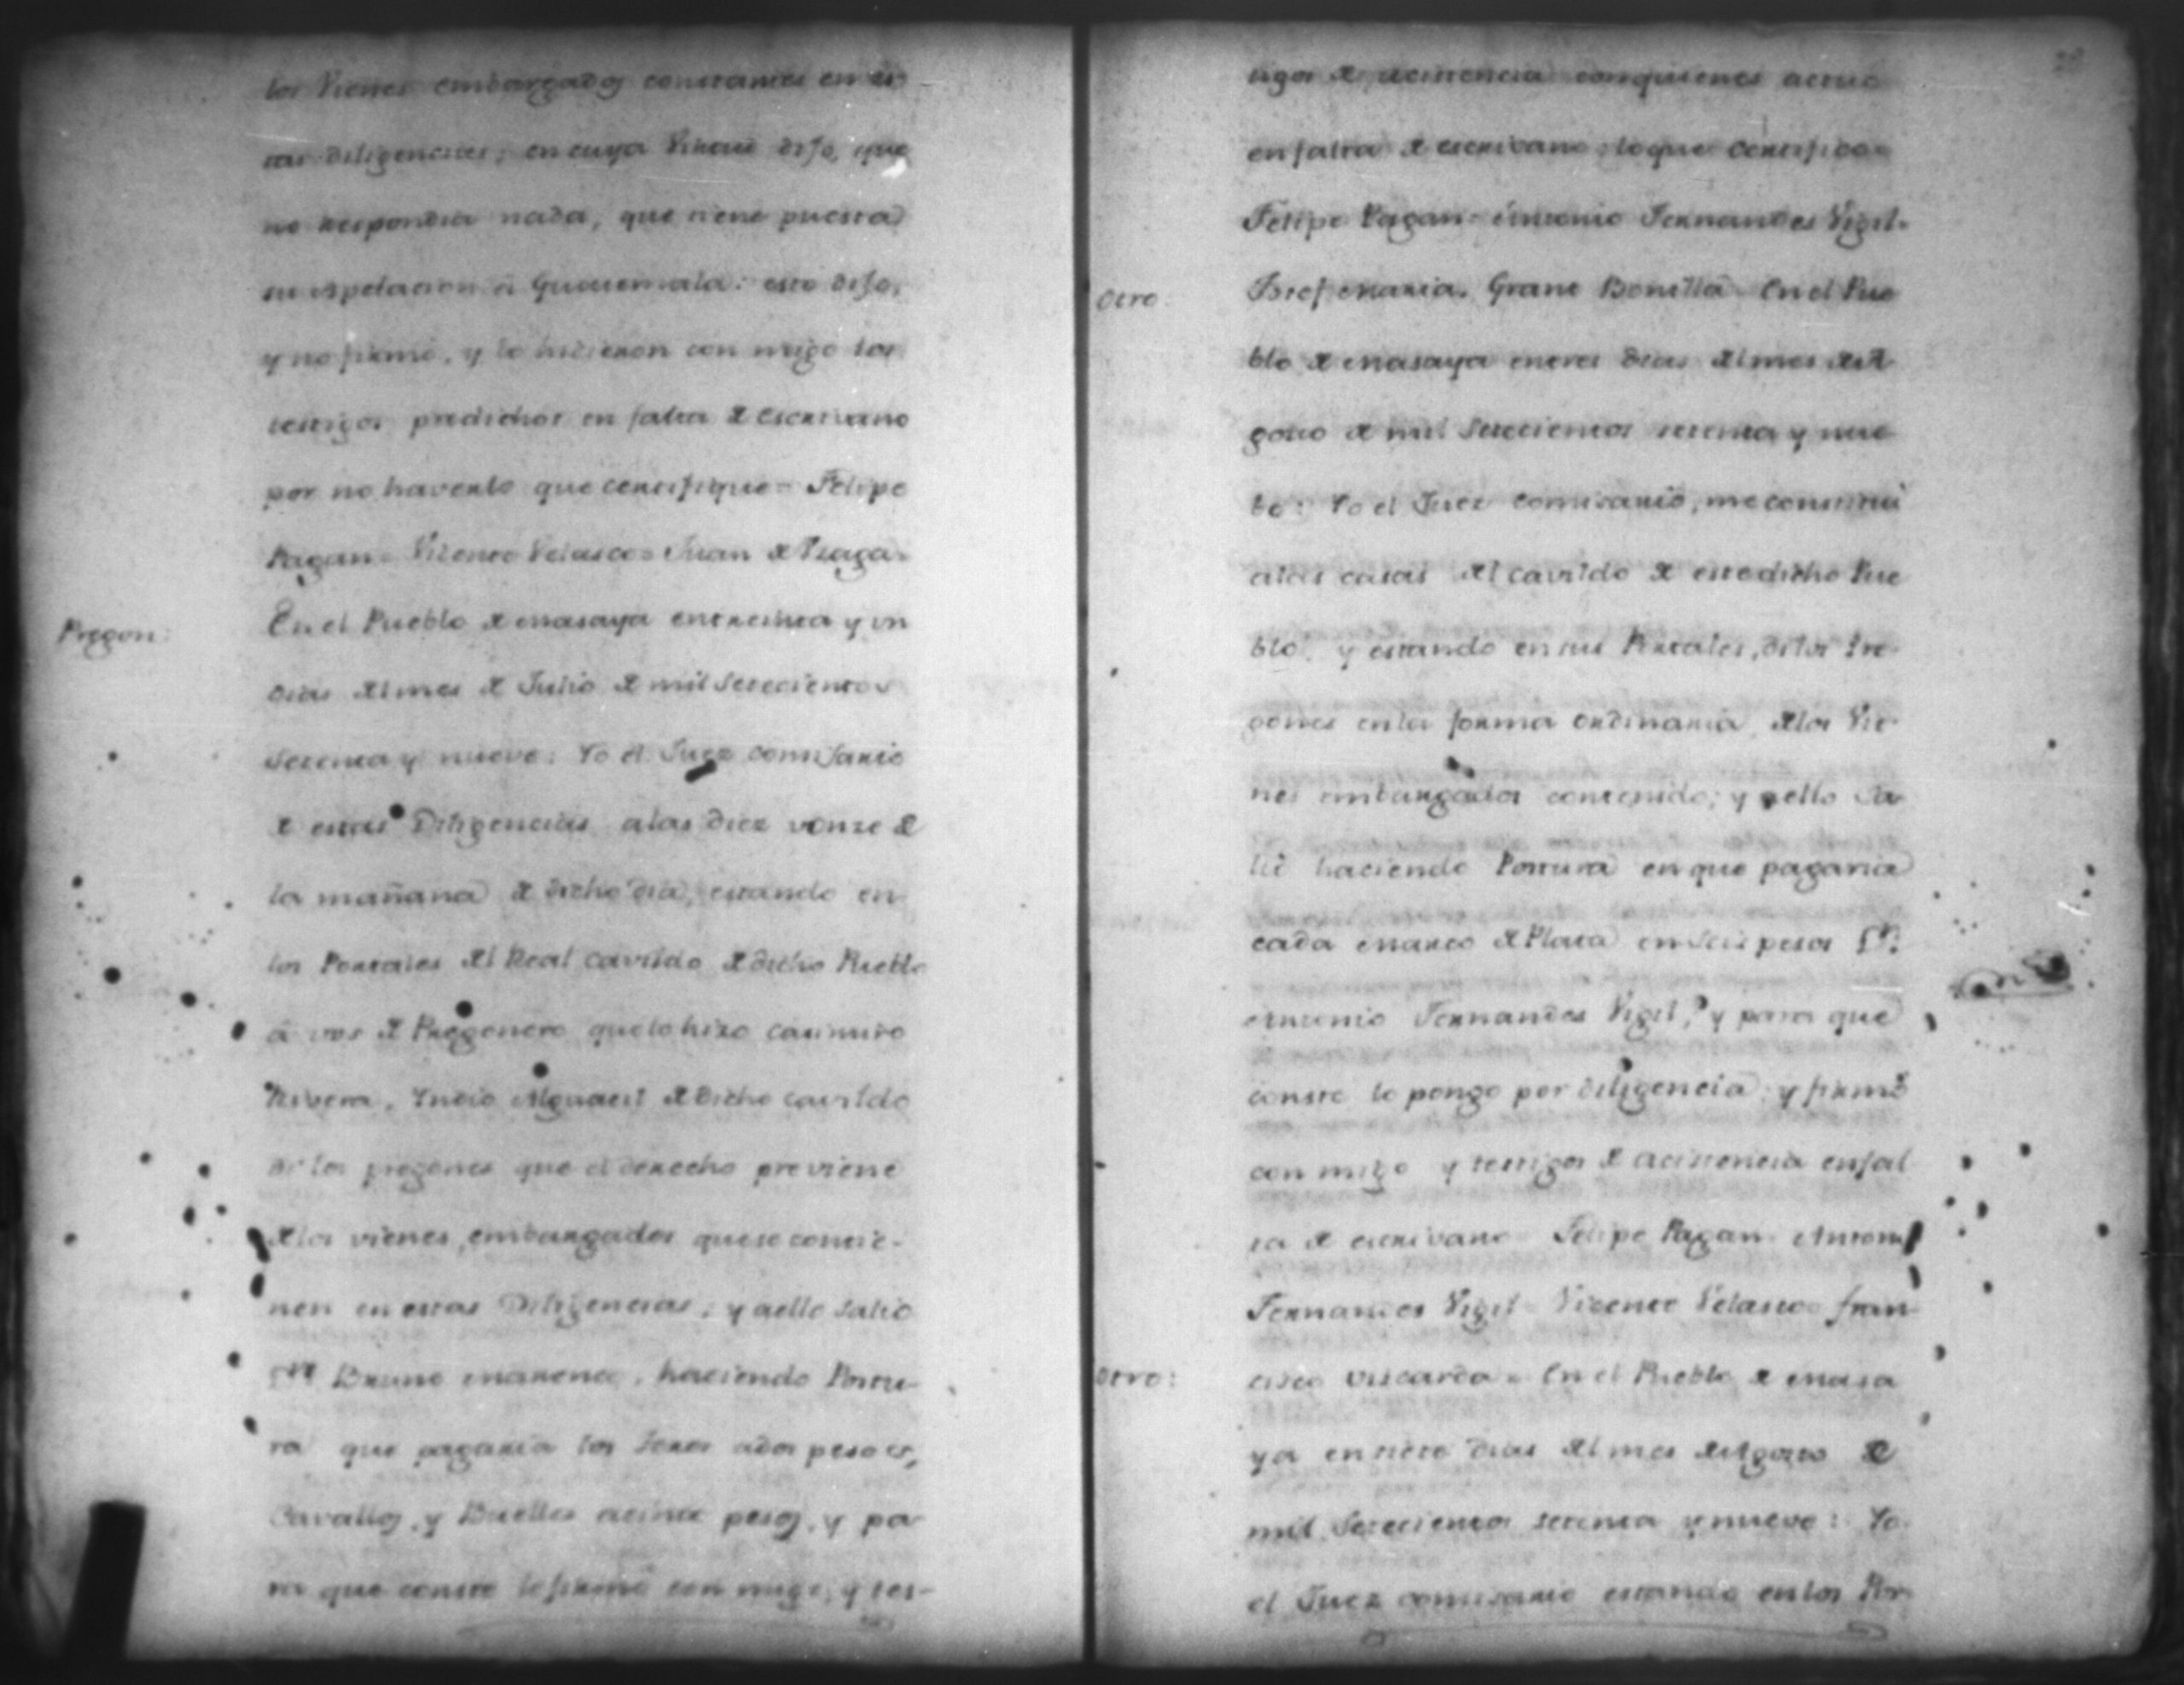 los Vienes embargados constantes en es-
tas diligencias; en cuya Virtud dijo, que
no respondia nada, que tiene puesta
su apelacion â Guatemala: esto dijo,
y no firmó, y lo hicieron con migo los
testigos predichos en falta de escrivano
por no haverlo que certifique = Felipe
Pagan = Vicente Velasco = Juan de Praga =
Pregon:
En el Pueblo de Masaya en treinta y un
dias del mes de Julio de mil Setecientos
Setenta y nueve: Yo el Juez Comisario
de estas Diligencias alas diez u onze de
la mañana de dicho dia, estando en
los Portales del Real Cavildo de dicho Pueblo
â vos de Pregonero que lo hizo Casimiro
Rivera, Yndio Alguacil de dicho cavildo
di los pregones que el derecho previene
de los vienes embargados que se contie-
nen en estas Diligencias; y aello Salió
Bruno Marenco, haciendo Postu-
ra que pagaria los Toros ados pesos,
Cavallos, y Buelles acinco pesos, y pa-
ra que conste lo firmó con migo, y tes-
tigos de acistencia con quienes actuo
en falta de escrivano, loque Certifico =
Felipe Pagan = Antonio Fernandes Vigil =
Otro:
Bonilla = En el Pue
blo de Masaya en tres dias del mes de A
gosto de mil Setecientos setenta y nue
be: Yo el Juez Comisario, me constitui
alas casas del cavildo de este dicho Pue
blo, y estando en sus Portales, di los Pre
gones enla forma ordinaria, de los Vie
nes embargados contenido; y aello Sa
lió haciendo Postura en que pagaria
cada Marco de Plata en Seis pesos Dn.
Antonio Fernandes Vigil, y para que
conste lo pongo por diligencia y firmó
con migo y testigos de acistencia en fal
ta de escrivano = Felipe Pagan = Antonio
Fernandes Vigil = Vicente Velasco = Fran
cisco Viscarda = En el Pueblo de Masa
Otro:
ya en siete dias del mes de Agosto de
mil Setecientos setenta y nueve: Yo
el Juez comisario estando en los Por